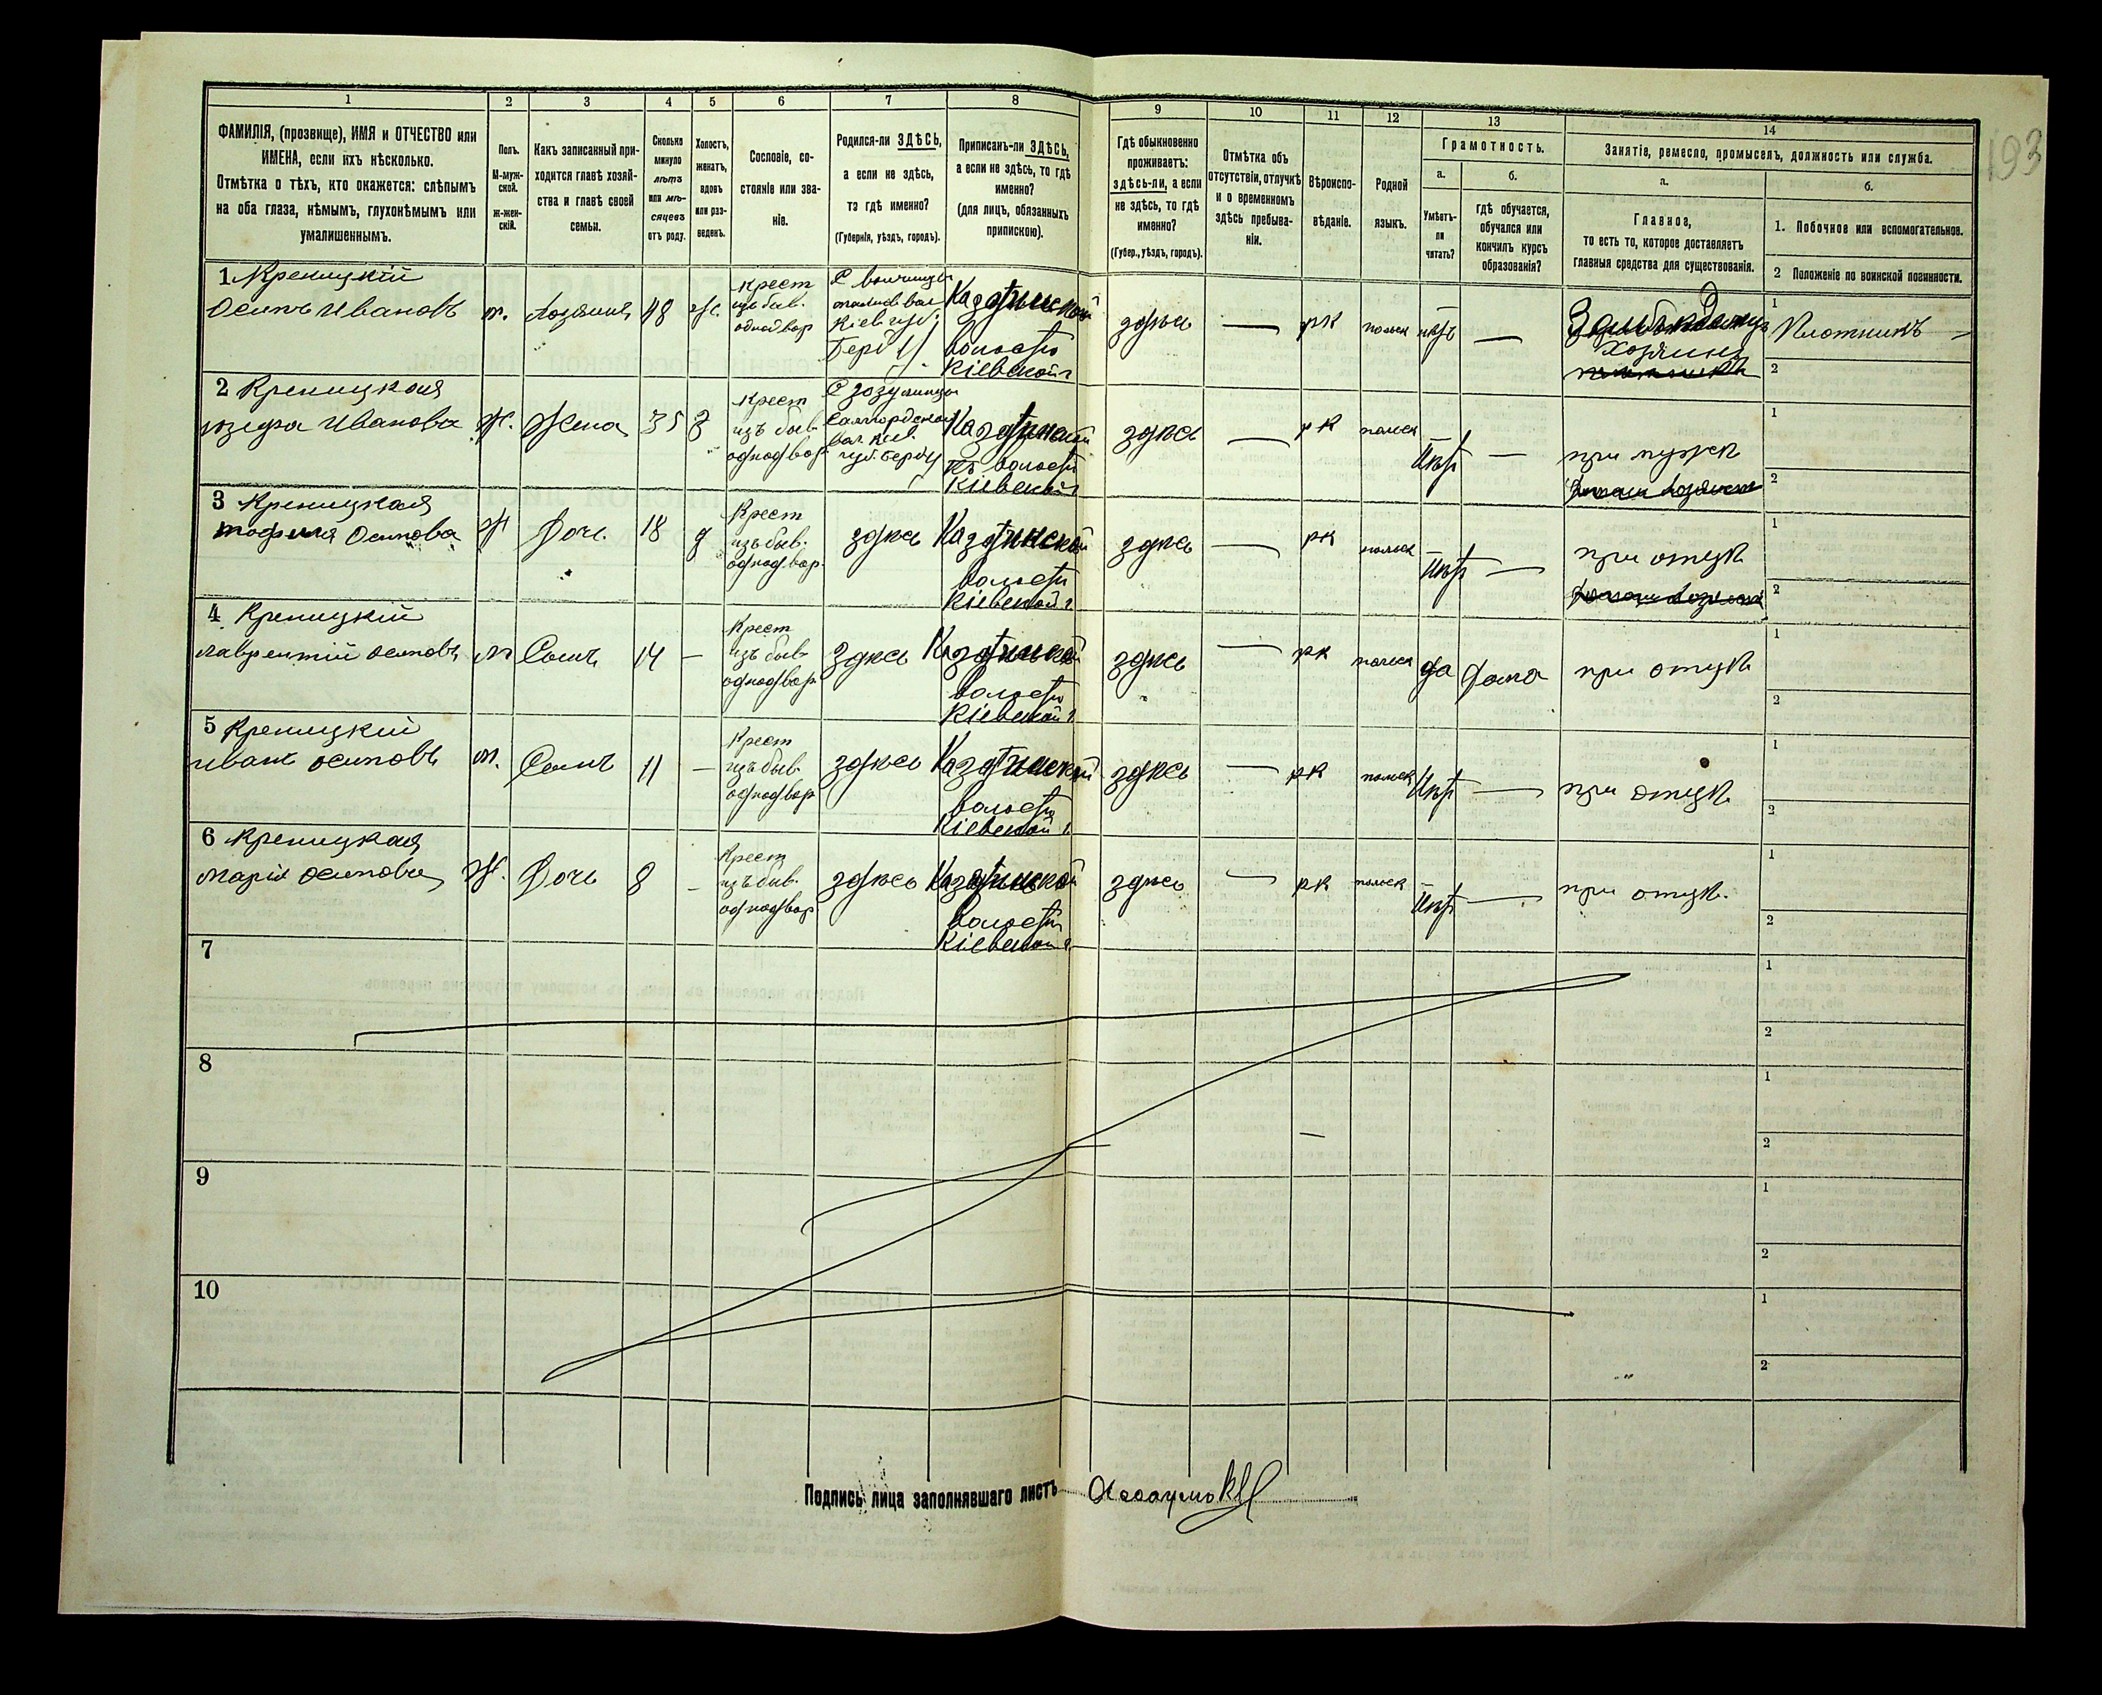 193
1 2 3 4 5 6 7 8 9 10 11 12 13 14
ФАМИЛІЯ, (прозвище), ИМЯ и ОТЧЕСТВО или
ИМЕНА, если ихъ нѣсколько.
Отмѣтка о тѣхъ, кто окажется: слѣпымъ
на оба глаза, нѣмымъ, глухонѣмымъ или
умалишеннымъ.
Полъ.
М-муж-
ской.
ж-жен-
скій.
Какъ записанный при-
ходится главѣ хозяй-
ства и главѣ своей
семьи.
Сколько
минуло
лѣтъ
или мѣ-
сяцевъ
отъ роду.
Холостъ,
женатъ,
вдовъ
или раз-
веденъ.
Сословіе, со-
стояніе или зва-
ніе.
Родился-ли ЗДѢСЬ,
а если не здѣсь,
то гдѣ именно?
(Губернія, уѣздъ, городъ).
Приписанъ-ли ЗДѢСЬ,
а если не здѣсь, то гдѣ
именно?
(для лицъ, обязанныхъ
припискою).
Гдѣ обыкновенно
проживаетъ:
здѣсь-ли, а если
не здѣсь, то гдѣ
именно?
(Губер., уѣздъ, городъ).
Отмѣтка объ
отсутствіи, отлучкѣ
и о временномъ
здѣсь пребыва-
ніи.
Вѣроиспо-
вѣданіе.
Родной
языкъ.
Грамотность.
а.
Умѣетъ-
ли
читать?
б.
гдѣ обучается,
обучался или
кончилъ курсъ
образованія?
Занятіе, ремесло, промыселъ, должность или служба.
а.
Главное,
то есть то, которое доставляетъ
главныя средства для существованія.
б.
1. Побочное или вспомогательное.
2 Положеніе по воинской повинности.
1 Креницкій
Осипъ Ивановъ м. Хозяинъ 48 ж.
Крест
изъ быв.
однодвор
Кіев губ.
Казатинской
волости
Кіевской г
здѣсь — рк польск нѣтъ —
хозяинъ
1 Плотникъ
2
2 Креницкая
Юзефа Иванова ж. Жена 35 З
Крест
изъ быв.
однодвор
Казатинской
волости
Кіевской г
здѣсь — рк польск Нѣт — при мужѣ
1
2
3 Креницкая
Теофиля Осипова ж Дочь 18 д
Крест
изъ быв.
однодвор.
здѣсь Казатинской
волости
Кіевской г.
здѣсь — рк польск Нѣт — при отцѣ
1
2
4 Креницкій
Лаврентій Осиповъ м Сынъ 14 —
Крест
изъ быв.
однодвор.
здѣсь Казатинской
волости
Кіевской г
здѣсь — рк польск да Дома при отцѣ
1
2
5 Креницкій
Иванъ Осиповъ м. Сынъ 11 —
Крест
изъ быв.
однодвор
здѣсь Казатинской
волости
Кіевской г.
здѣсь — рк польск Нѣт — при отцѣ
1
2
6 Креницкая
Марія Осипова ж. Дочь 8 –
Крест
изъ быв.
однодвор
здѣсь Казатинской
волости
Кіевской г.
здѣсь — рк польск Нѣт — при отцѣ.
1
2
7
1
2
8
1
2
9
1
2
10
1
2
Подпись лица заполнявшаго листъ